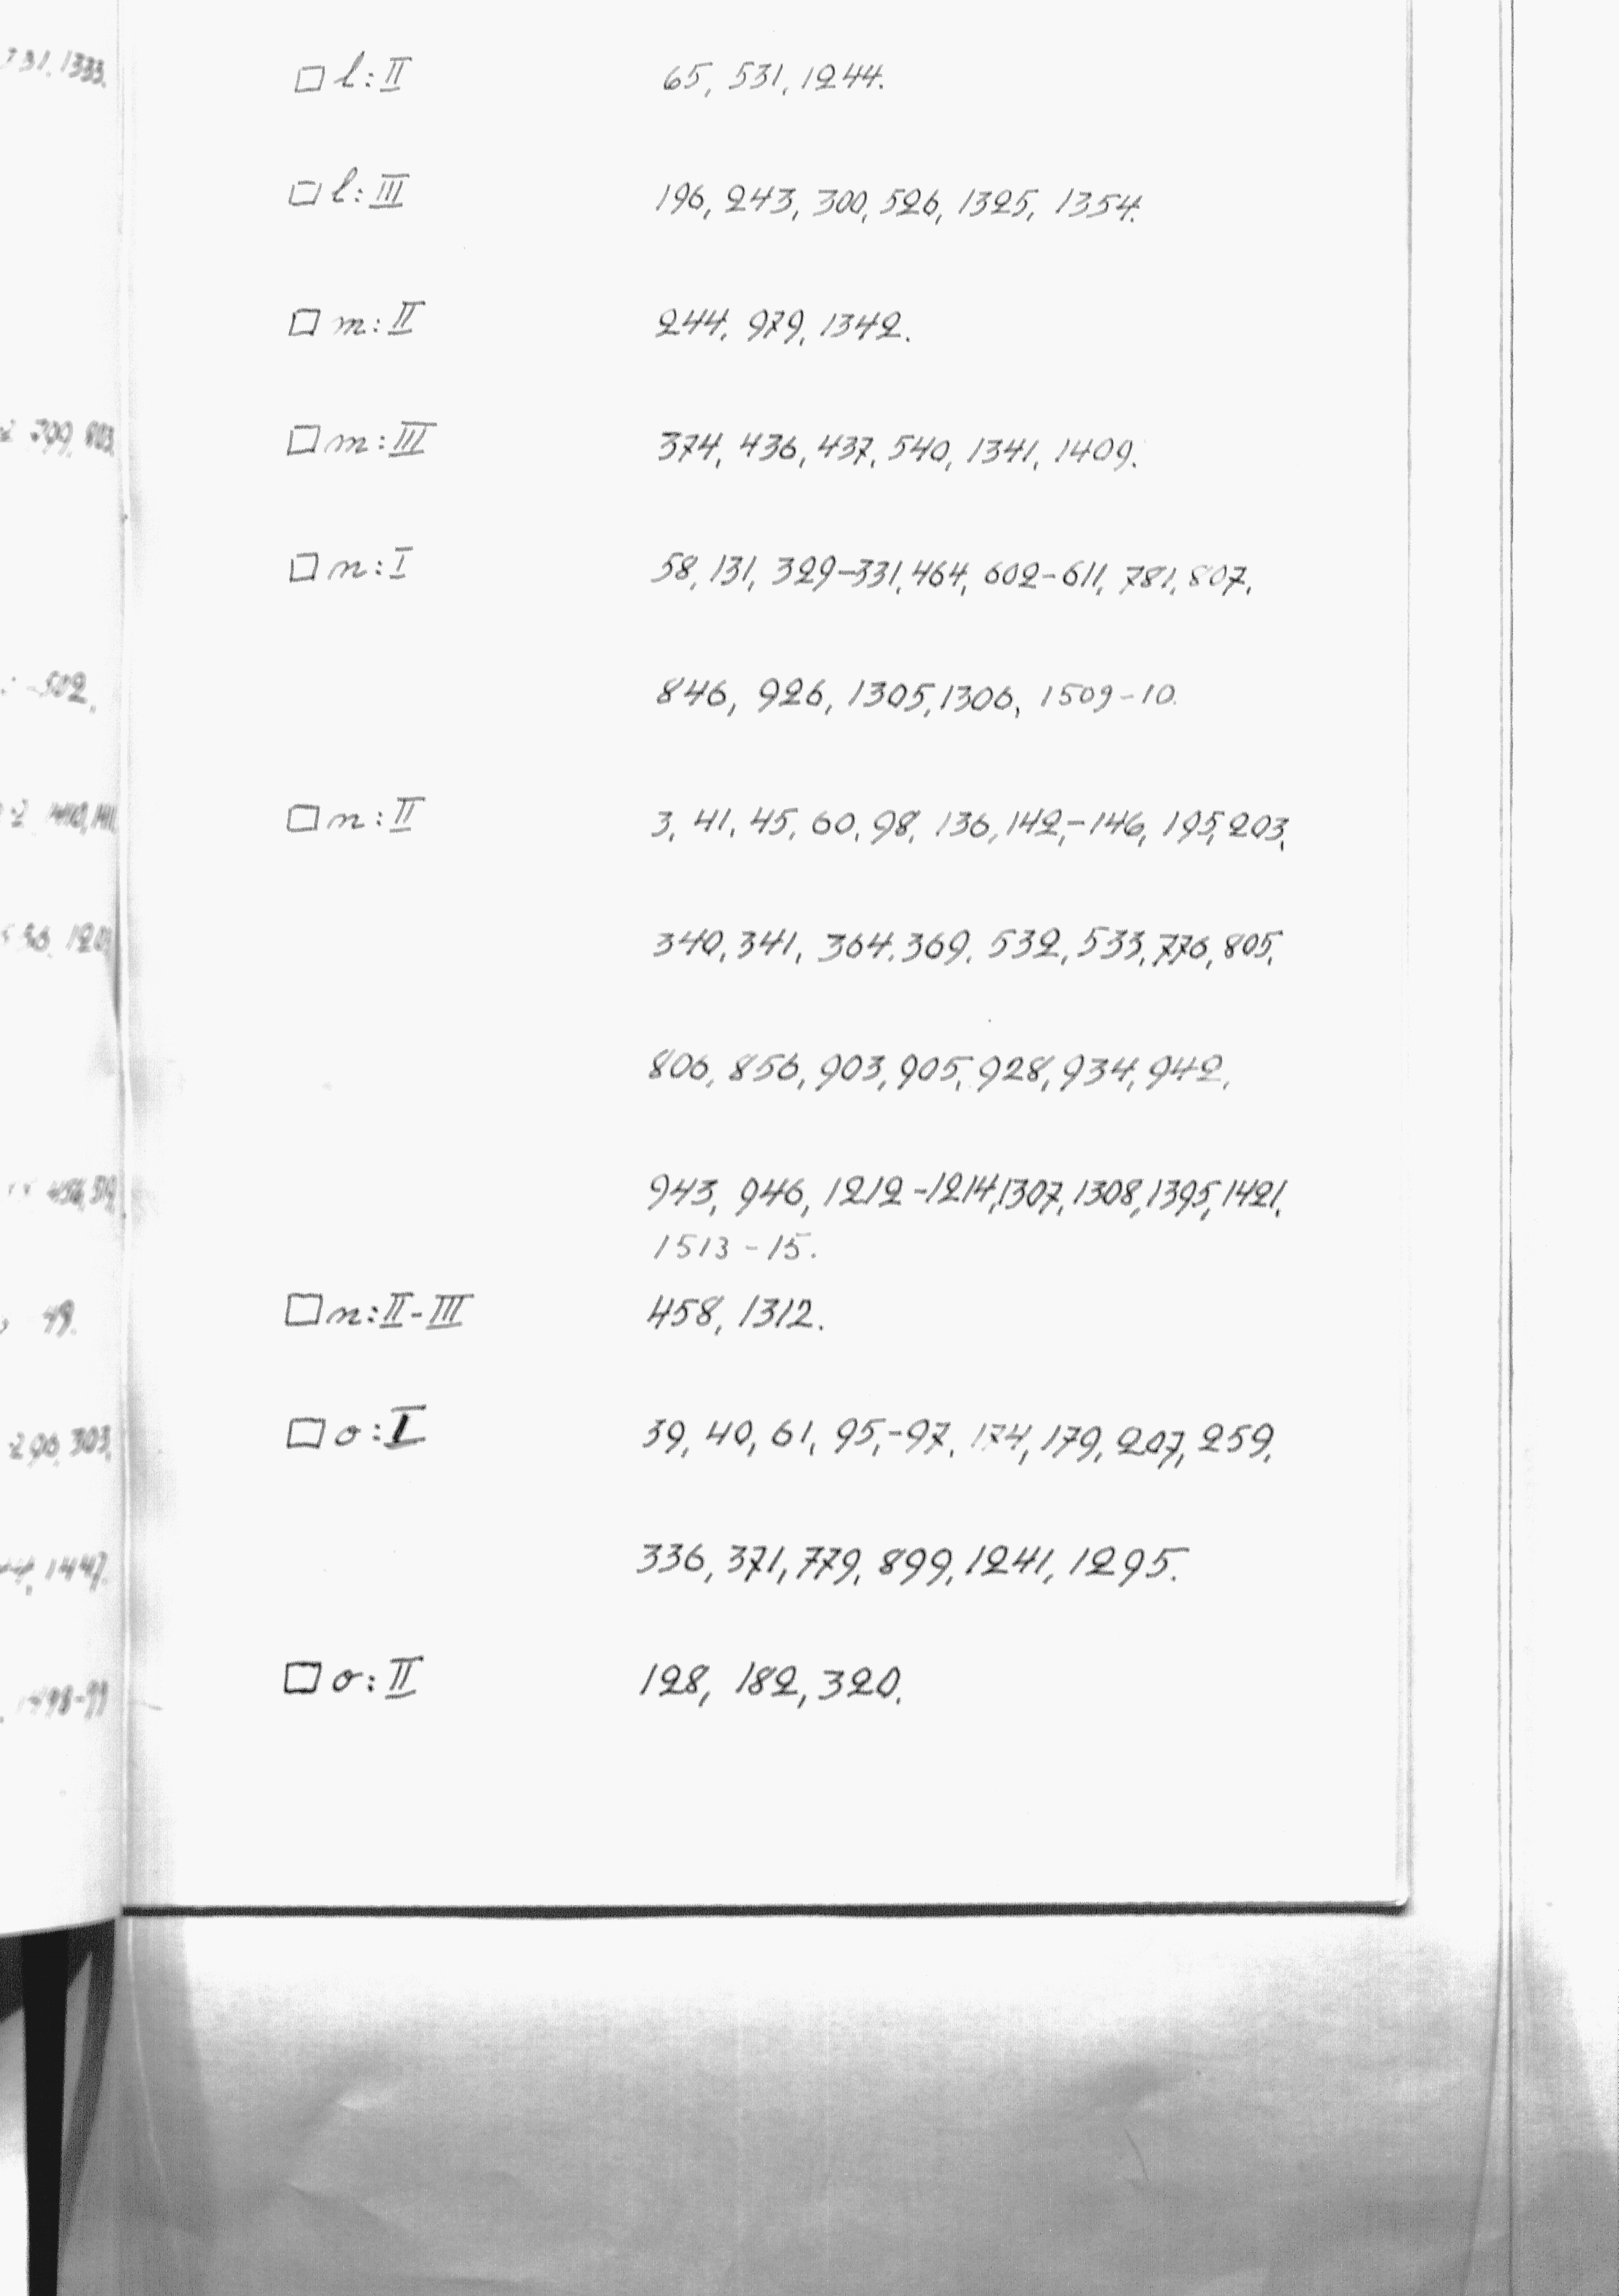 □ l: II 65, 531, 1244.
□ l: III 196, 243, 300, 526, 1325, 1354.
□ m: II 244, 979, 1342.
□ m: III 374, 436, 437, 540, 1341, 1409.
□ n: I 58, 131, 329-331, 464, 602-611, 781, 807,
846, 926, 1305, 1306, 1509-10.
□ n: II 3, 41, 45, 60, 98, 136, 142,-146, 195, 203,
340, 341, 364. 369. 532, 533, 776, 805,
806, 856, 903, 905, 928, 934, 942,
943, 946, 1212-1214, 1307, 1308, 1395, 1421,
1513-15.
□ n: II-III 458, 1312.
□ o: I 39, 40, 61, 95,-97, 174, 179, 207, 259,
336, 371, 779, 899, 1241, 1295.
□ o: II 128, 182, 320.